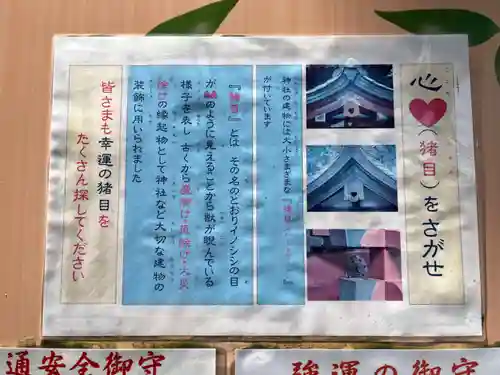 心♥(猪目)をさがせ
神社の建物には大小さまざまな『猪目
が付いています
『猪目』とは その名のとおりイノシシの目
が♥のように見えることから獣が睨んでいる
様子を表し 古くから魔除け・
除けの縁起物として神社など大切な建物の
装飾に用いられました
皆さまも幸運の猪目を
たくさん探してください
通安全御守
強運の御守